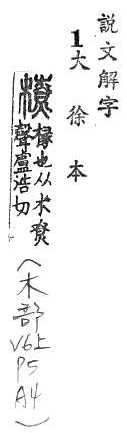 說文解字
1大徐本
橑 椽也从木尞
聲盧浩切
(木部V6上P5A4)